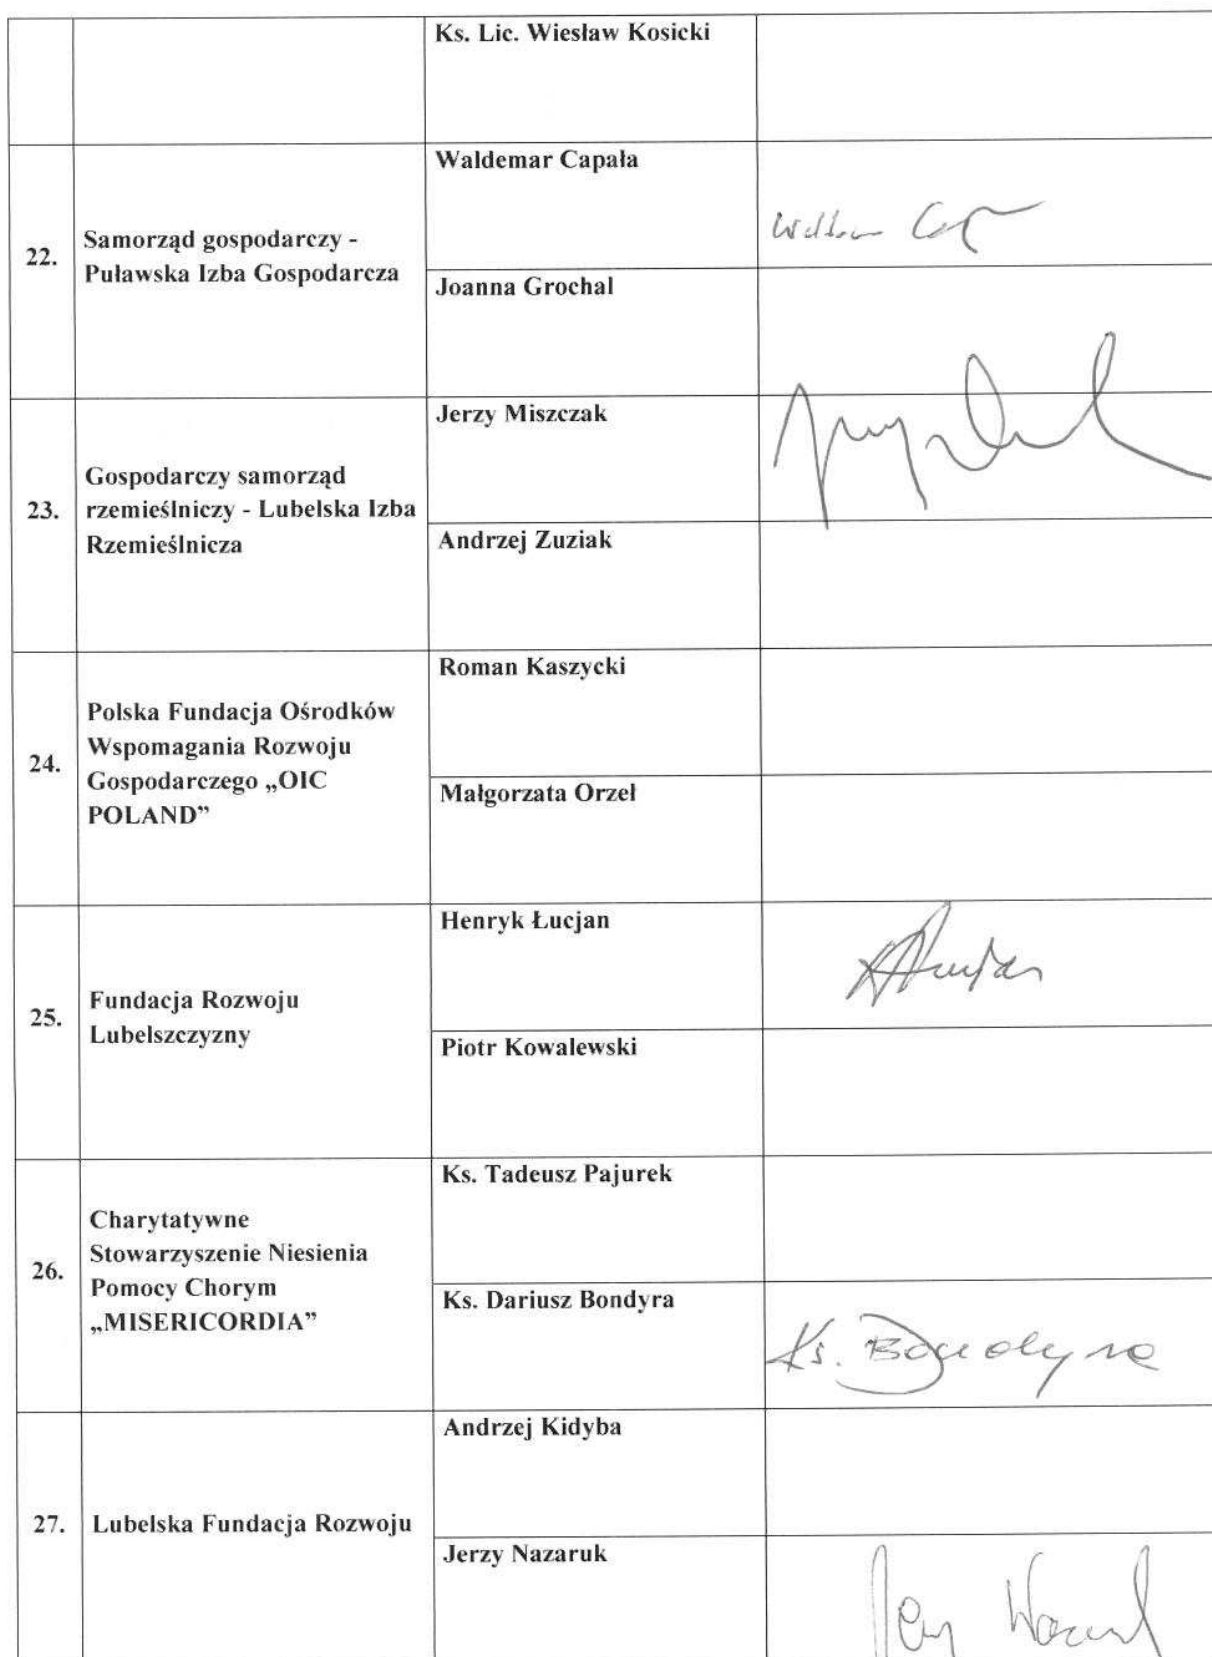 Ks. Lic. Wiesław Kosicki
22.
Samorząd gospodarczy -
Puławska Izba Gospodarcza
Waldemar Capała
Joanna Grochal
23.
Gospodarczy samorząd
rzemieślniczy - Lubelska Izba
Rzemieślnicza
Jerzy Miszczak
Andrzej Zuziak
24.
Polska Fundacja Ośrodków
Wspomagania Rozwoju
Gospodarczego „OIC
POLAND”
Roman Kaszycki
Małgorzata Orzeł
25.
Fundacja Rozwoju
Lubelszczyzny
Henryk Łucjan
Piotr Kowalewski
26.
Charytatywne
Stowarzyszenie Niesienia
Pomocy Chorym
„MISERICORDIA”
Ks. Tadeusz Pajurek
Ks. Dariusz Bondyra
Ks. Bondyra
27.
Lubelska Fundacja Rozwoju
Andrzej Kidyba
Jerzy Nazaruk